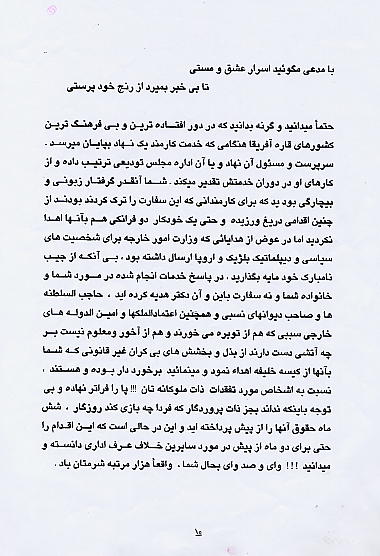 با مدعی مگوئید اسرار عشق و مستی
تا بی خبر بمیرد از رنج خود پرستی
حتماً میدانید و گرنه بدانید که در دور افتاده ترین و بی فرهنگ ترین
کشورهای قاره آفریقا هنگامی که خدمت کارمند یک نهاد بپایان میرسد .
سرپرست و مسئول آن نهاد و یا آن اداره مجلس تودیعی ترتیب داده و از
کارهای او در دوران خدمتش تقدیر میکند . شما آنقدر گرفتار زبونی و
بیچارگی بود ید که برای کارمندانی که این سفارت را ترک کردند بودند از
چنین اقدامی دریغ ورزیده و حتی یک خودکار دو فرانکی هم بآنها اهدا
نکردید اما در عوض از هدایائی که وزارت امور خارجه برای شخصیت های
سیاسی و دیپلماتیک بلژیک و اروپا ارسال داشته بود ، بی آنکه از جیب
نامبارک خود مایه بگذارید ، در پاسخ خدمات انجام شده در مورد شما و
خانواده شما و نه سفارت باین و آن دکتر هدیه کرده اید ، حاجب السلطنه
ها و صاحب دیوانهای نسبی و همچنین اعتمادالملکها و امین الدوله های
خارجی سببی که هم از توبره می خورند و هم از آخور ومعلوم نیست بر
چه آتشی دست دارند از بذل و بخشش های بی کران غیر قانونی که شما
بآنها از کیسه خلیفه اهداء نمود و مینمائید برخورد دار بوده و هستند ،
نسبت به اشخاص مورد تفقدات ذات ملوکانه تان !!! پا را فراتر نهاده و بی
توجه باینکه نداند بجز ذات پروردگار که فردا چه بازی کند روزگار ، شش
ماه حقوق آنها را از پیش پرداخته اید و این در حالی است که ایـن اقدام را
حتی برای دو ماه از پیش در مورد سایرین خلاف عرف اداری دانسته و
میدانید !!! وای و صد وای بحال شما ، واقعاً هزار مرتبه شرمتان باد .